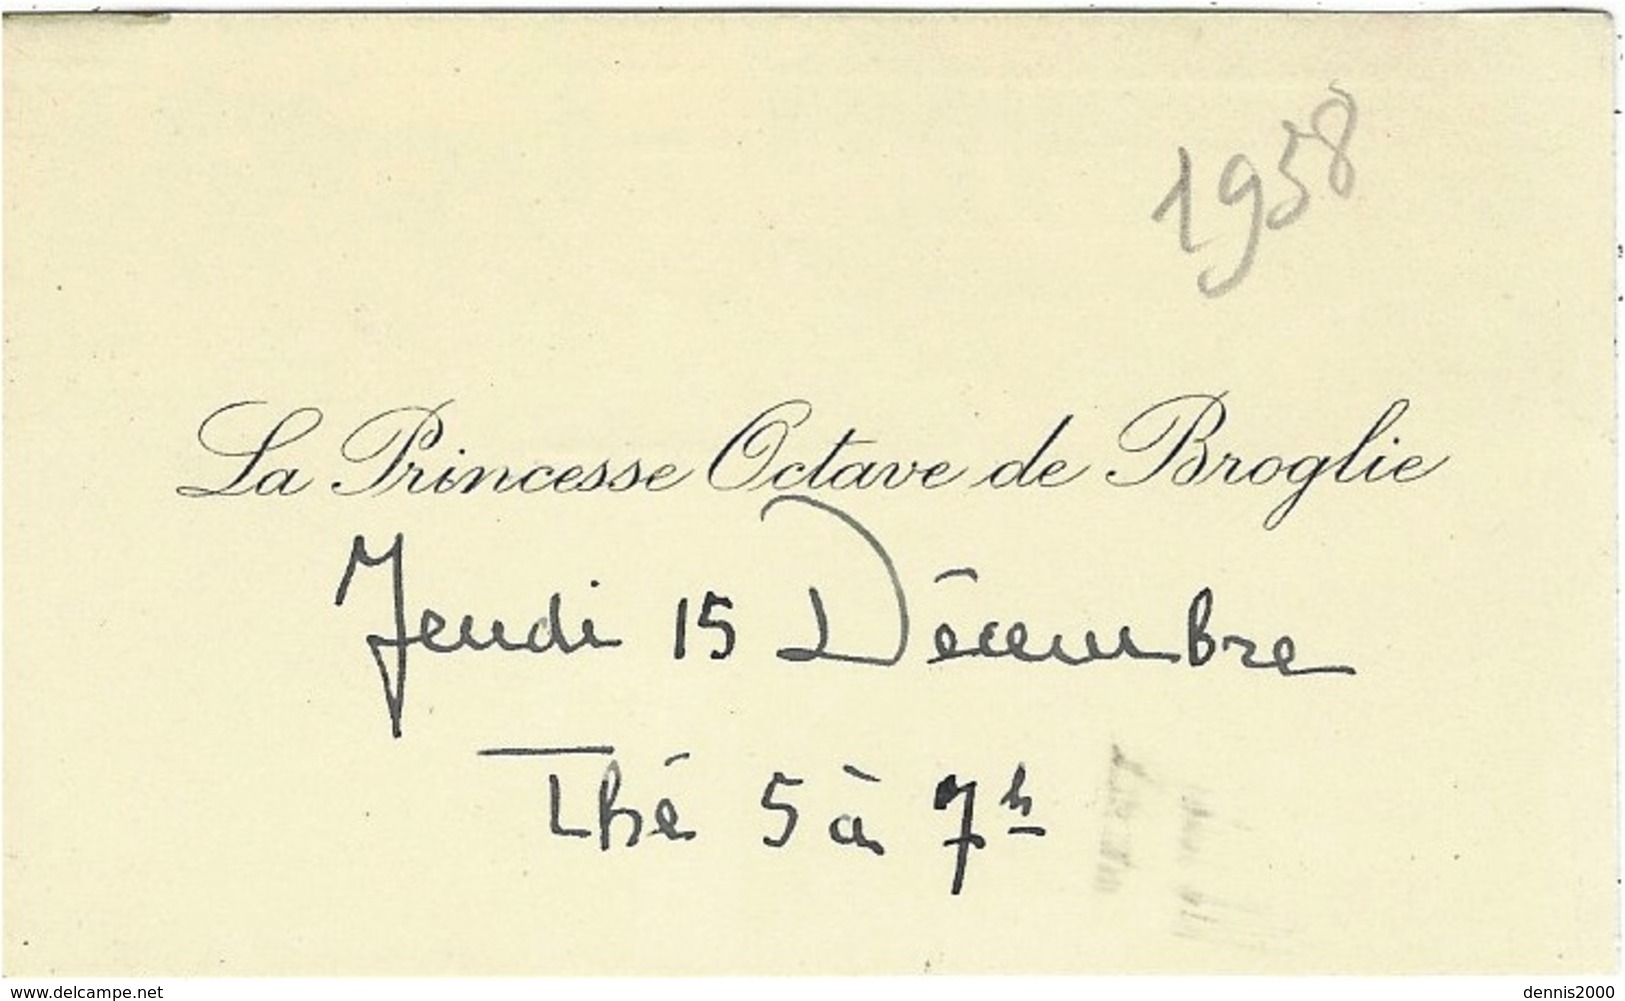 1958
La Princesse Octave de Broglie
Jeudi 15 Décembre
Thé 5 à 7h
www.delcampe.net
dennis2000